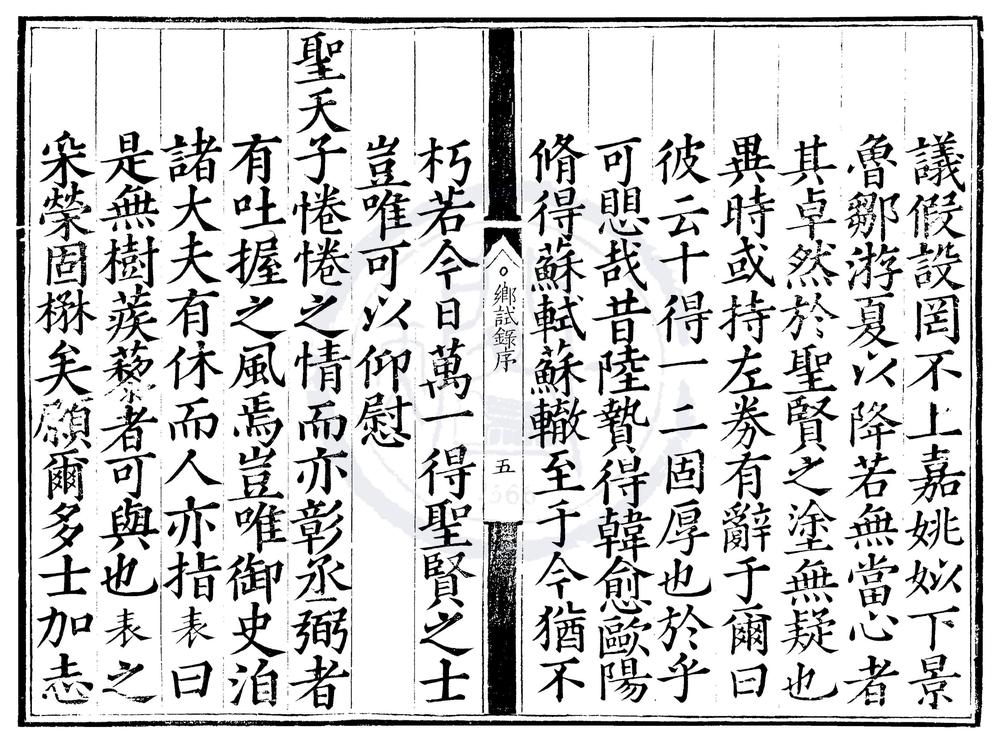 議假設罔不上嘉姚姒下景
魯鄒游夏以降若無當心者
其卓然於聖賢之塗無疑也
異時或持左券有辭于爾曰
彼云十得一二固厚也於乎
可思哉昔陸贄得韓愈歐陽
脩得蘇軾蘇轍至于今猶不
鄉試錄序
五
朽若今日萬一得聖賢之士
豈唯可以仰慰
聖天子惓惓之情而亦彰丞弼者
有吐握之風焉豈唯御史洎
諸大夫有休而人亦指表曰
是無樹蒺藜者可與也表之
采榮固楙矣願爾多士加志